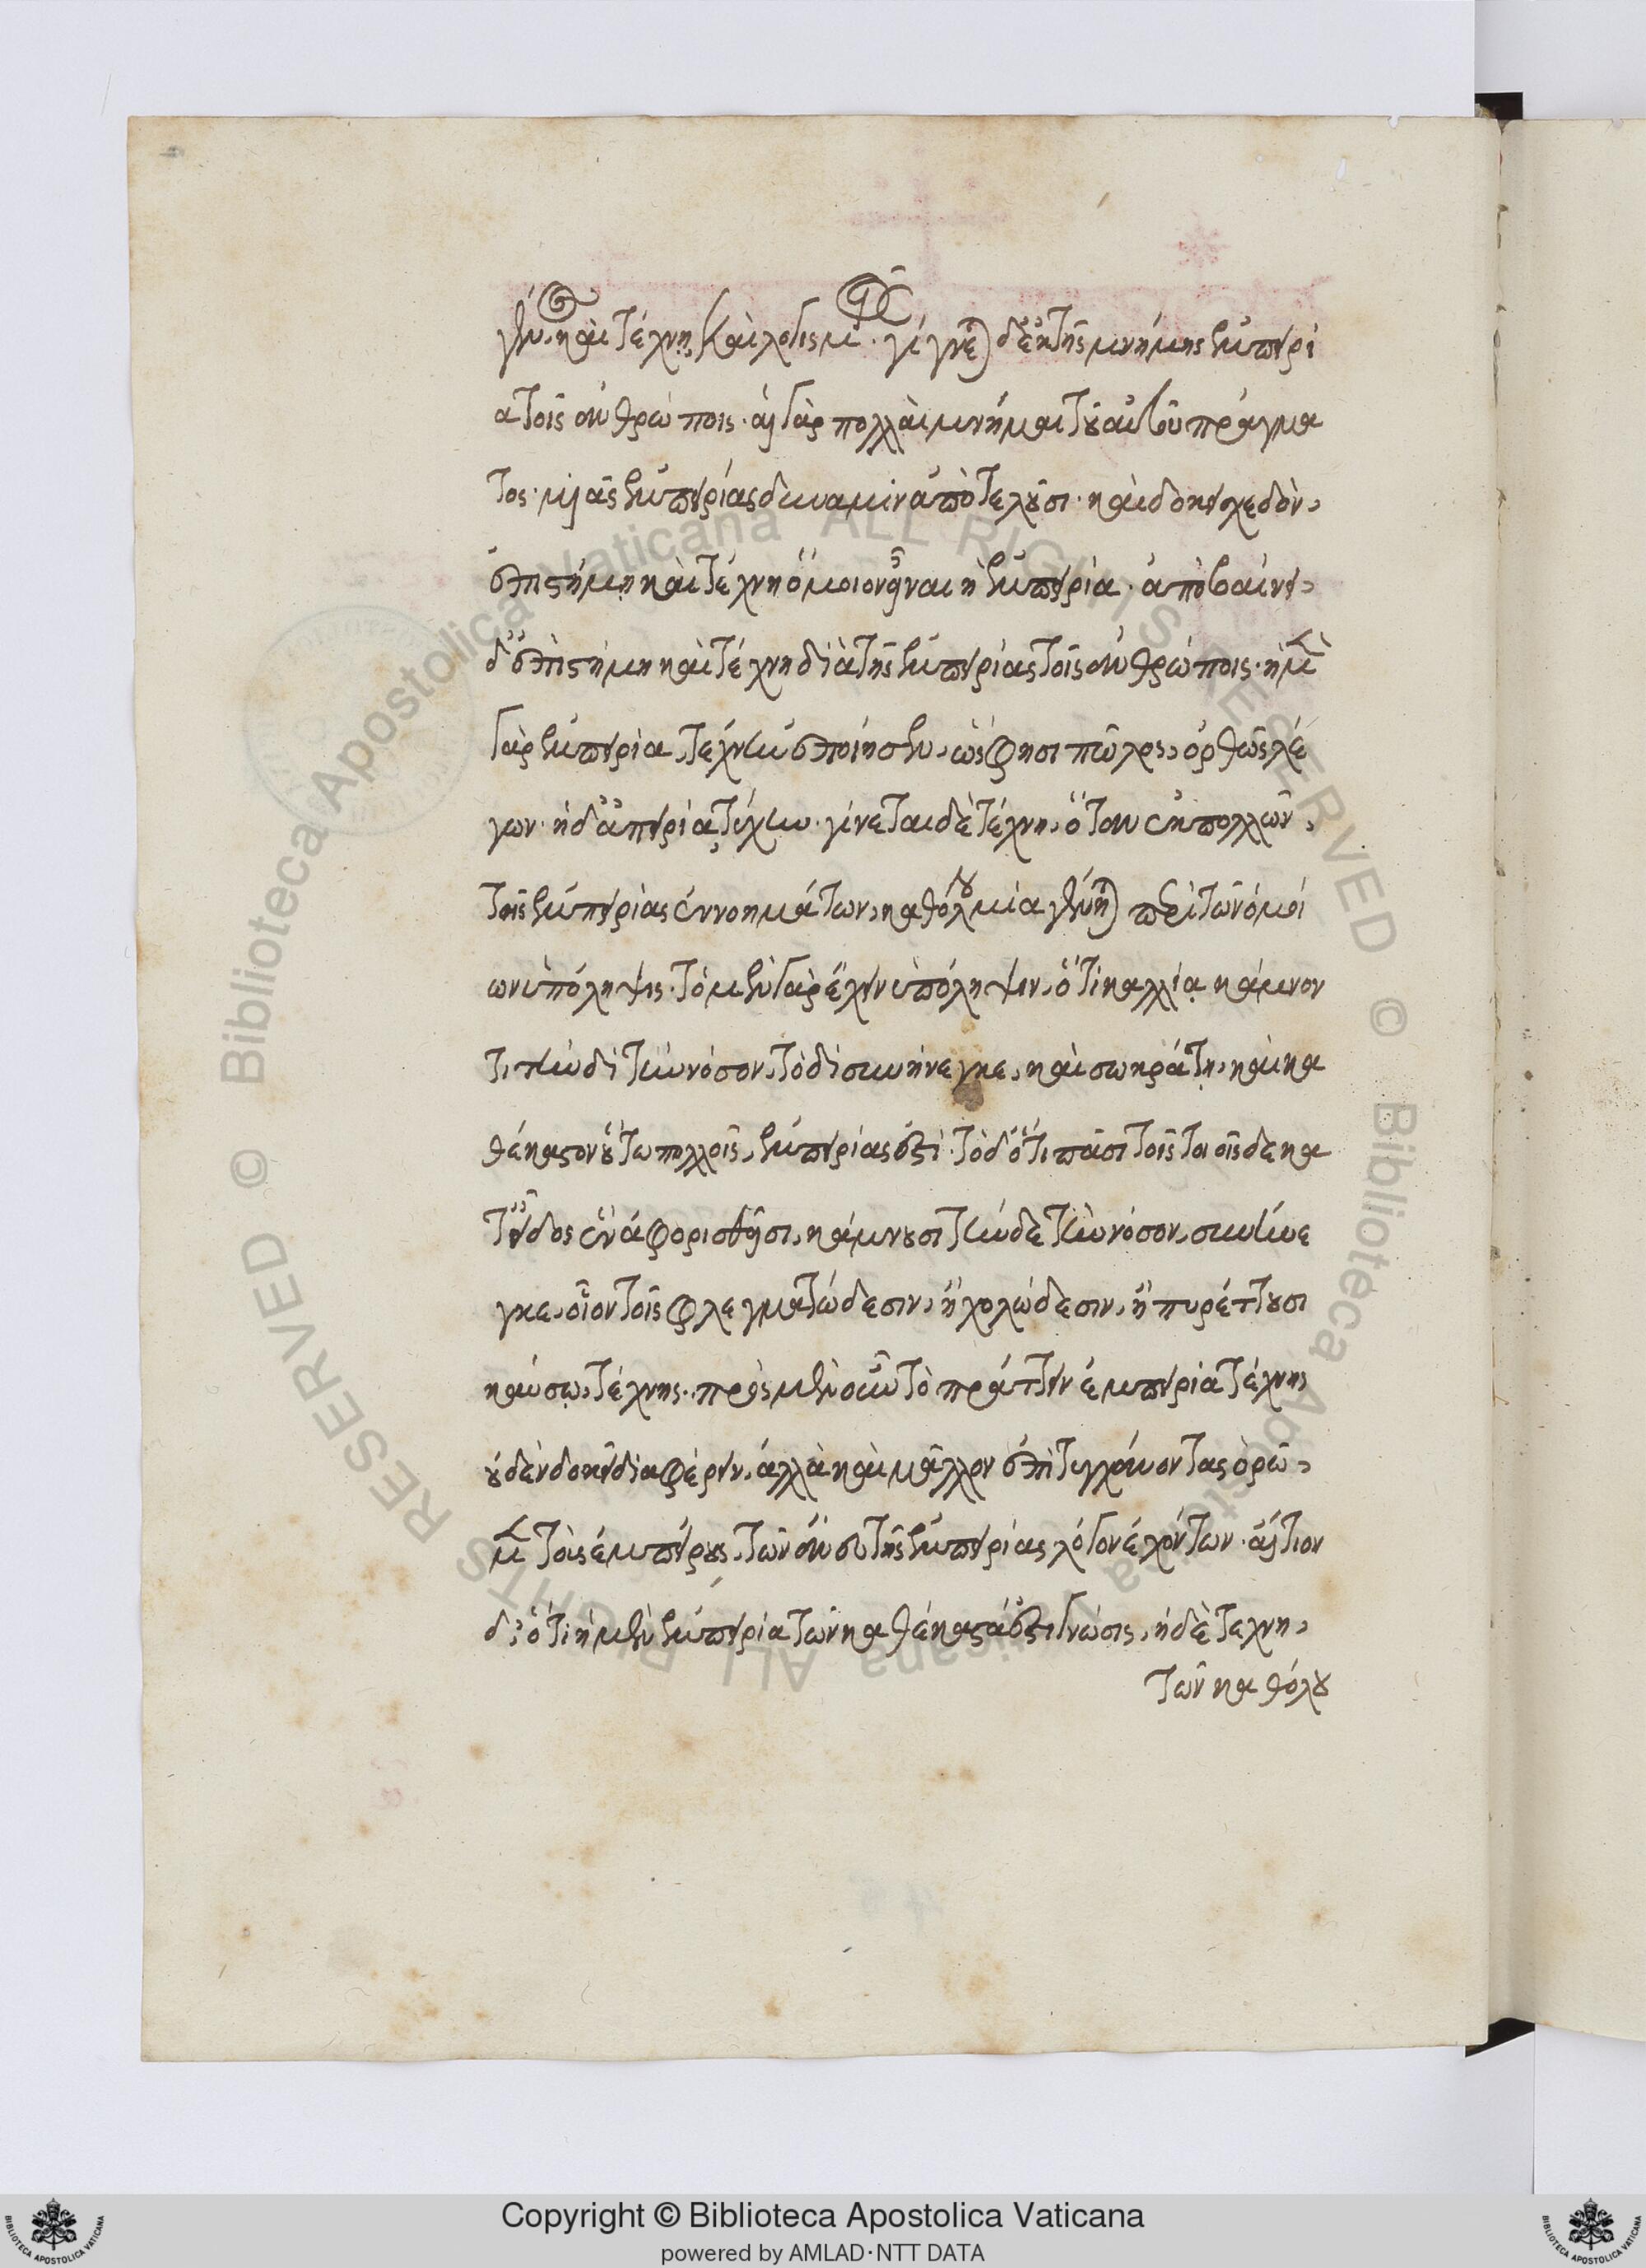 γένος, καὶ τέχνῃ καὶ λογισμοῖς. γίγνεται δ' ἐκ τῆς μνήμης ἐμπειρί
α τοῖς ἀνθρώποις. αἱ γὰρ πολλαὶ μνῆμαι τοῦ αὐτοῦ πράγμα
τος. μιᾶς ἐμπειρίας δύναμιν ἀποτελοῦσι. καὶ δοκεῖ σχεδὸν,
ἐπιστήμῃ καὶ τέχνῃ ὅμοιον εἶναι ἡ ἐμπειρία. ἀποβαίνει,
δ' ἐπιστήμη καὶ τέχνη διὰ τῆς ἐμπειρίας τοῖς ἀνθρώποις. ἡ μὲν
γὰρ ἐμπειρία, τέχνην ἐποίησεν, ὥς φησι πῶλος, ὀρθῶς λέ
γων. ἡ δ' ἀπειρία, τύχην. γίνεται δὲ τέχνη, ὅταν ἐκ πολλῶν,
τῆς ἐμπειρίας ἐννοημάτων, καθόλου μία γένηται περὶ τῶν ὁμοί
ων ὑπόληψις. τὸ μὲν γὰρ ἔχειν ὑπόληψιν, ὅτι καλλίᾳ κάμνον
τι τηνδὶ τὴν νόσον, τοδὶ συνήνεγκε, καὶ σωκράτῃ, καὶ κα
θέκαστον οὕτω πολλοῖς, ἐμπειρίας ἐστί. τὸ δ' ὅτι πᾶσι τοῖς τοιοῖσδε κα
τ' εἶδος ἓν ἀφορισθεῖσι, κάμνουσι τήνδε τὴν νόσον, συνήνε
γκε, οἷον τοῖς φλεγματώδεσιν, ἢ χολώδεσιν, ἢ πυρέττουσι
καύσῳ, τέχνης. πρὸς μὲν οὖν τὸ πράττειν ἐμπειρία τέχνης
οὐδὲν δοκεῖ διαφέρειν, ἀλλὰ καὶ μᾶλλον ἐπιτυγχάνοντας ὁρῶ,
μεν τοὺς ἐμπείρους, τῶν ἄνευ τῆς ἐμπειρίας λόγον ἐχόντων. αἴτιον
δ' ὅτι ἡ μὲν ἐμπειρία τῶν καθέκαστά ἐστι γνῶσις, ἡ δὲ τέχνη,
τῶν καθόλου
Copyright © Biblioteca Apostolica Vaticana
powered by AMLAD·NTT DATA
© Biblioteca Apostolica Vaticana ALL RIGHTS RESERVED © Biblioteca Apostolica Vaticana ALL RIGHTS RESERVED
BIBLIOTECA APOSTOLICA VATICANA
BIBLIOTECA APOSTOLICA VATICANA